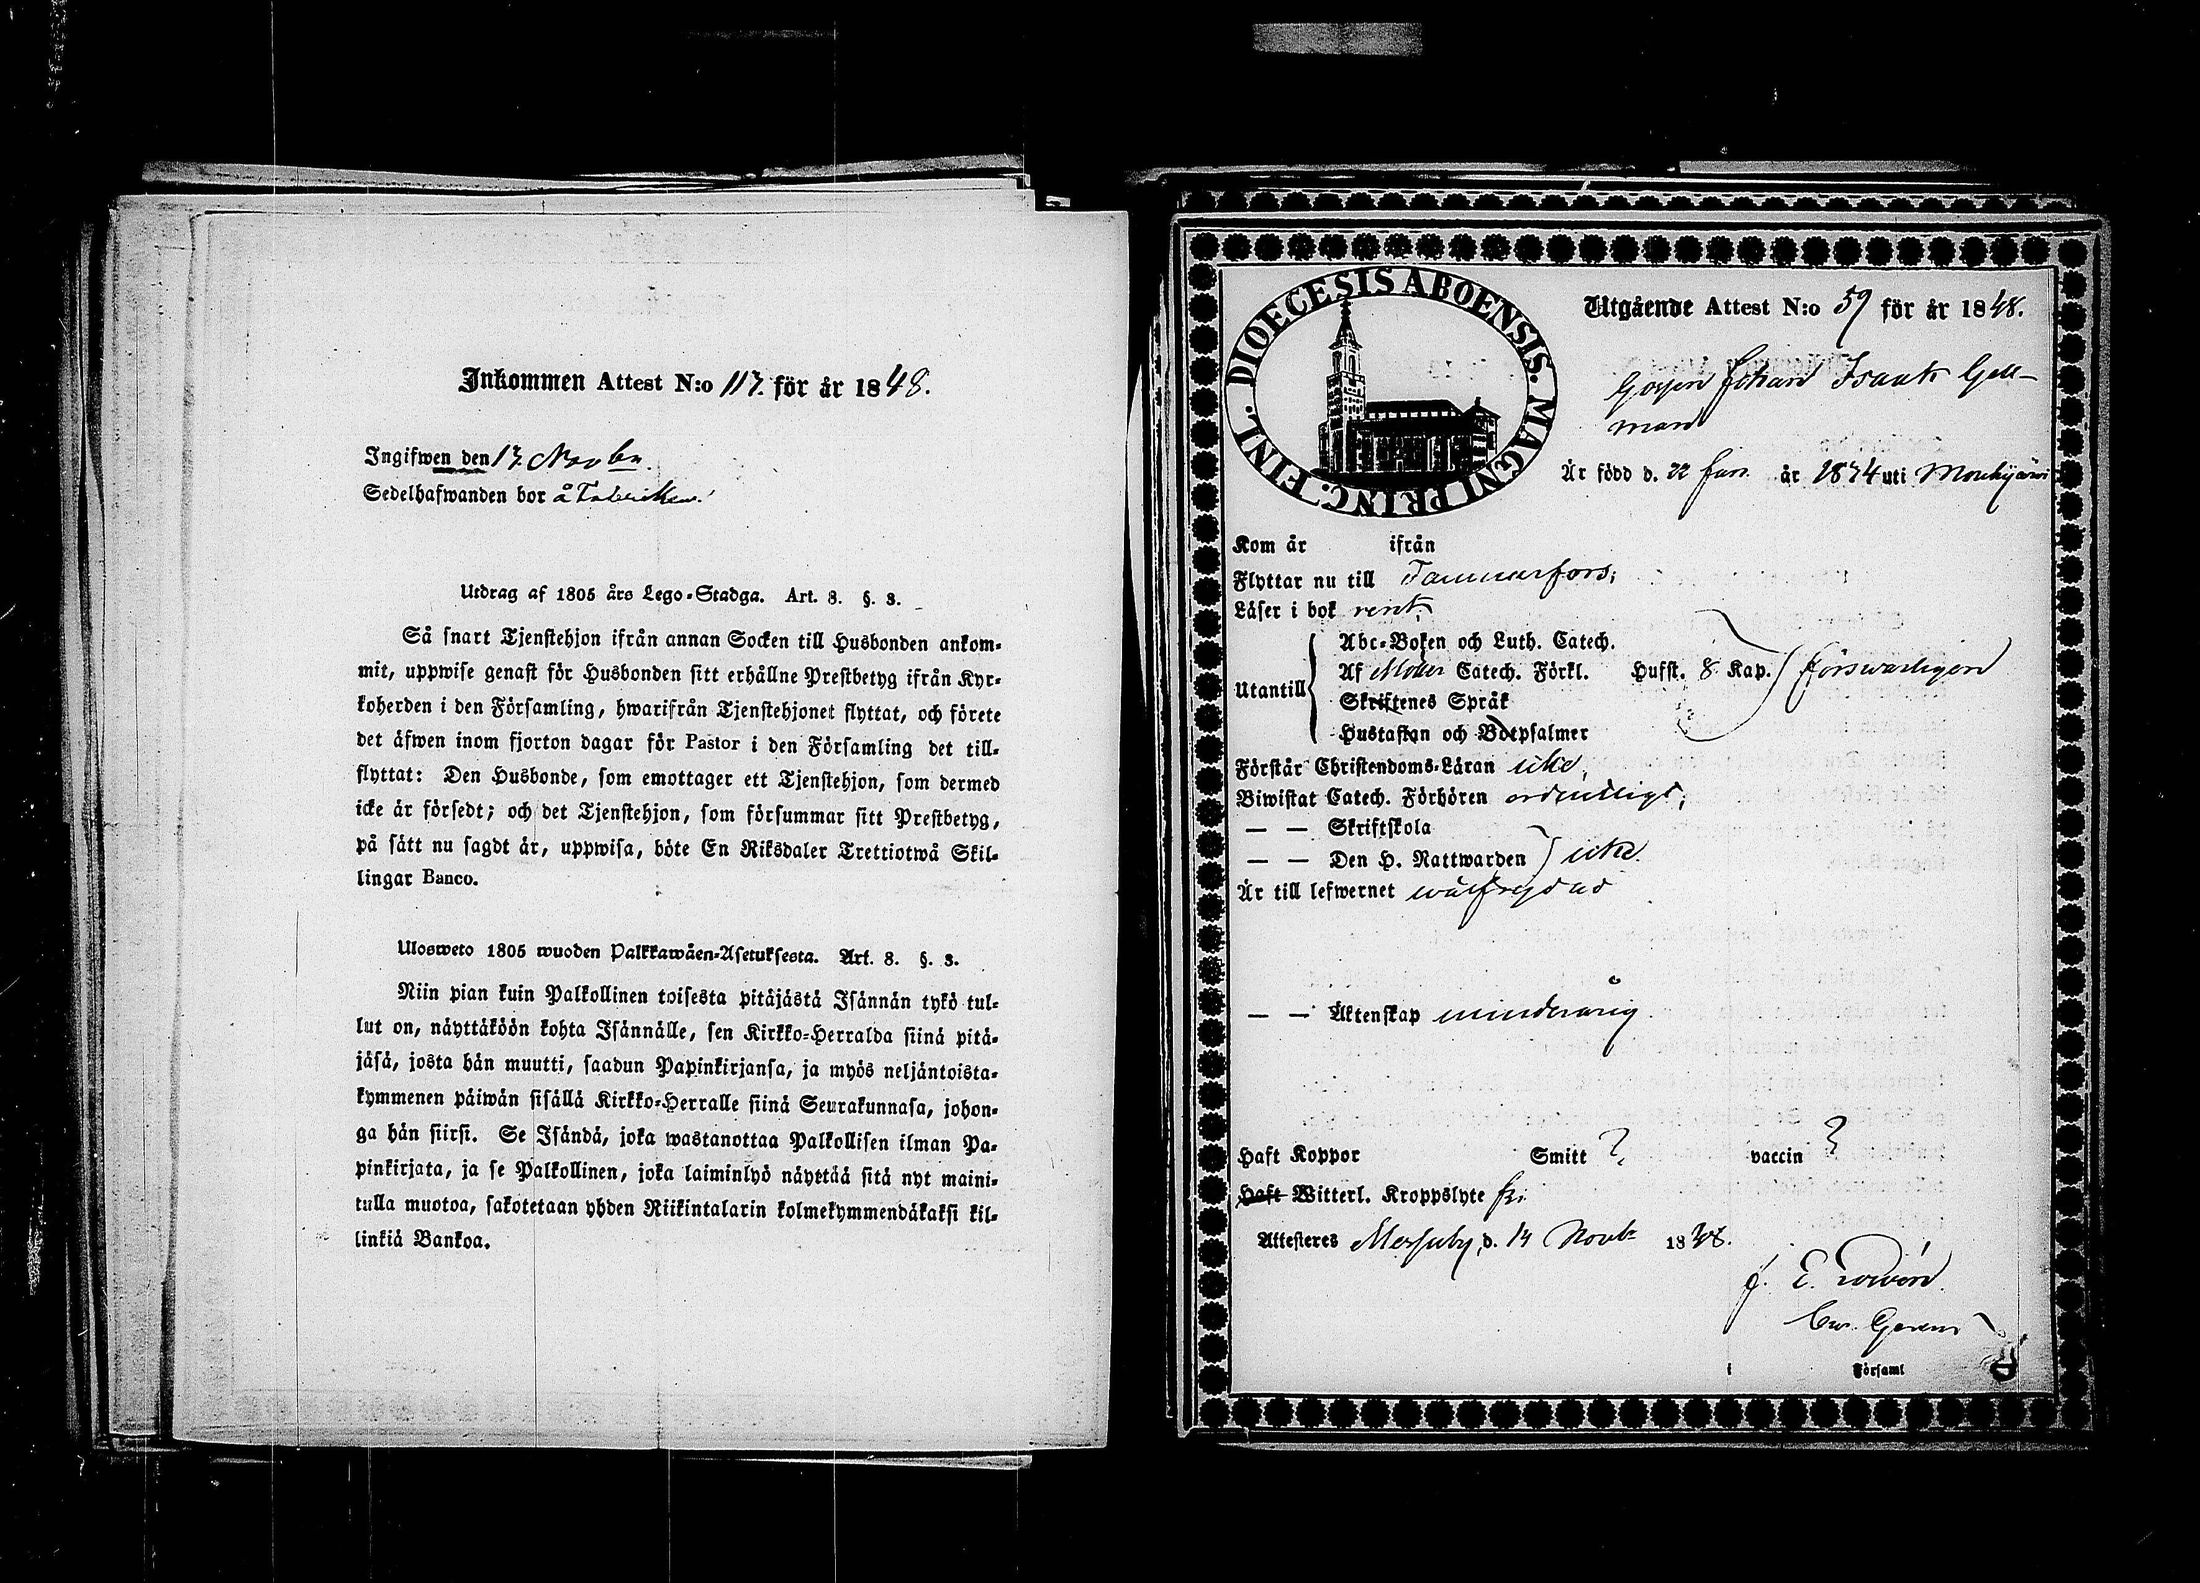 Inkommen Attest N:o 117. för år 1848.
Ingifwen den 17. Novbr.
Sedelhafwanden bor å Fabriken.
Utdrag af 1805 års Lego-Stadga. Art. 8. §. 3.
Så snart Tjenstehjon ifrån annan Socken till Husbonden ankom-
mit, uppwise genast för Husbonden sitt erhållne Prestbetyg ifrån Kyr-
koherden i den Församling, hwarifrån Tjenstehjonet flyttat, och förete
det äfwen inom fjorton dagar för Pastor i den Församling det till-
flyttat: Den Husbonde, som emottager ett Tjenstehjon, som dermed
icke är försedt; och det Tjenstehjon, som försummar sitt Prestbetyg,
på sätt nu sagdt är, uppwisa, böte En Riksdaler Trettiotwå Skil-
lingar Banco.
Ulosweto 1805 wuoden Palkkawäen-Asetuksesta. Art. 8. §. 3.
Niin pian kuin Palkollinen toisesta pitäjästä Isännän tykö tul-
lut on, näyttäköön kohta Isännälle, sen Kirkko-Herralda siinä pitä-
jäsä, josta hän muutti, saadun Papinkirjansa, ja myös neljäntoista-
kymmenen päiwän sisällä Kirkko-Herralle siinä Seurakunnasa, johon-
ga hän siirsi. Se Isändä, joka wastanottaa Palkollisen ilman Pa-
pinkirjata, ja se Palkollinen, joka laiminlyö näyttää sitä nyt maini-
tulla muotoa, sakotetaan yhden Riikintalarin kolmekymmendäkaksi kil-
linkiä Bankoa.
DIOECESIS ABOENSIS. MAGNI PRINC. FINL.
Utgående Attest N:o 59 för år 1848.
Gossen Johan Isaak Gell-
man
Är född d. 22 Jan. år 1834 uti Mouhijärvi
Kom år ifrån
Flyttar nu till Tammerfors;
Läser i bok rent;
Utantill
Abc-Boken och Luth. Catech.
Af Möller Catech. Förkl. Husst. 8 Kap. försvarligen
Skriftenes Språk
Hustaflan och Botpsalmer
Förstår Christendoms-Läran icke,
Biwistat Catech. Förhören ordentligt;
— — Skriftskola
— — Den H. Nattwarden icke.
Är till lefwernet wälfrejdad
— — Äktenskap minderårig
Haft Koppor Smitt ?, vaccin ?
Haft Witterl. Kroppslyte fri
Attesteras d. 14 Novbr 1848.
J. E.
i Församl